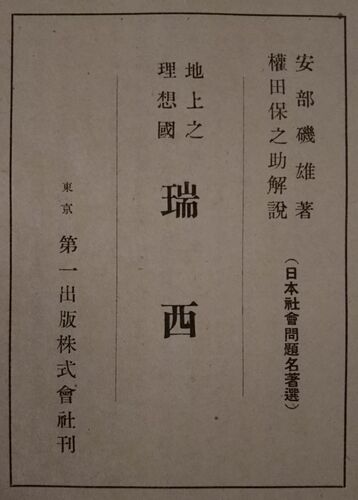 安部磯雄著
權田保之助解說
（日本社會問題名著選）
地上之
理想國
瑞西
東京 第一出版株式會社刊